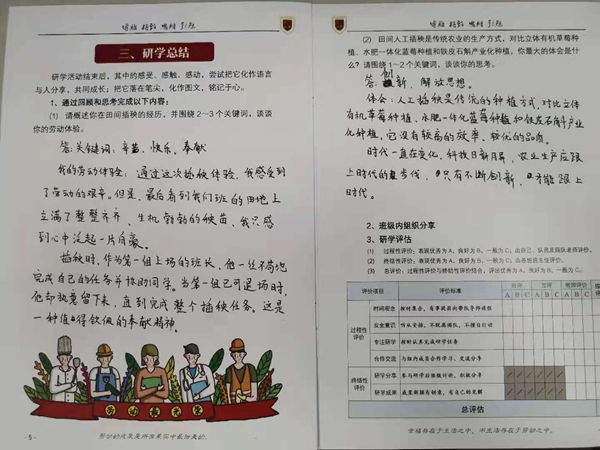 三、研学总结
研学活动结束后，其中的感受、感触、感动，尝试把它化作语言
与人分享，共同成长；把它落在笔尖，化作图文，铭记于心。
1、通过回顾和思考完成以下内容：
(1) 请概述你在田间插秧的经历，并围绕2～3个关键词，谈谈
你的劳动体验。
答：关键词：辛苦、快乐、奉献
我的劳动体验：通过这次插秧体验，我感受到
了劳动的艰辛。但是，最后看到我们班的田地上
立满了整整齐齐、生机勃勃的秧苗，我只感
到心中泛起一片自豪。
插秧时，作为第一组上场的班长，他一丝不苟地
完成自己的任务并协助同学。当第一组已可退场时，
他却执意留下来，直到完成整个插秧任务。这是
一种值得钦佩的奉献精神。
劳动最光荣
-5-
(2) 田间人工插秧是传统农业的生产方式，对比立体有机草莓种
植、水肥一体化蓝莓种植和铁皮石斛产业化种植，你最大的体会是什
么？请围绕1～2个关键词，谈谈你的思考。
答：创新、解放思想。
体会：人工插秧是传统的种植方式，对比立体
有机草莓种植、水肥一体化蓝莓种植和铁皮石斛产业
化种植，它没有较高的效率、较优的品质。
时代一直在变化，科技日新月异，农业生产应跟
上时代的步伐，只有不断创新，才能跟上
时代。
2、班级内组织分享
3、研学评估
(1) 过程性评价：表现优秀为A，良好为B，一般为C；出自己、队员及师队老师评价。
(2) 终结性评价：表现优秀为A，良好为B，一般为C；由各班班主任评价。
(3) 总评价：过程性评价与终结性评价结合，评出优秀为A，良好为B，一般为C。
评价项目 评价标准 自评 互评 教师评价
A B C A B C A B C
过程性评价 时间观念 按时集合，有事提前向带队导师请假
安全意识 听从安排，不脱离梯队，不擅自行动
专注研学 按时认真完成研学任务
合作交流 与组内成员合作学习、交流分享
终结性评价 研学分享 参与研学后班级讨论，积极分享
研学成果 成果新颖有创意，有自己的见解
总评估
幸福存在于生活之中，而生活存在于劳动之中。